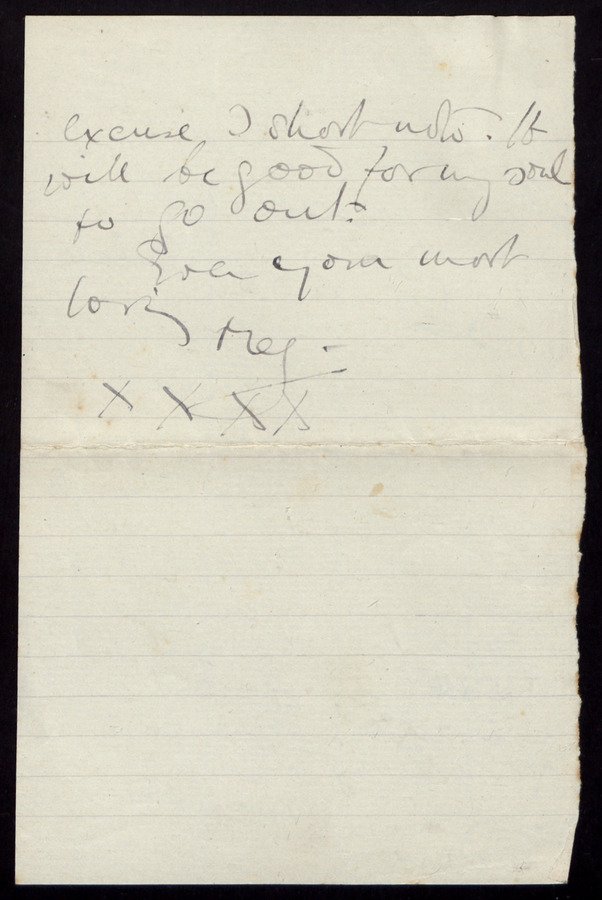 excuse I short note. It
will be good for my soul
to go out.
Ever your most
loving
Meg -
X X X X